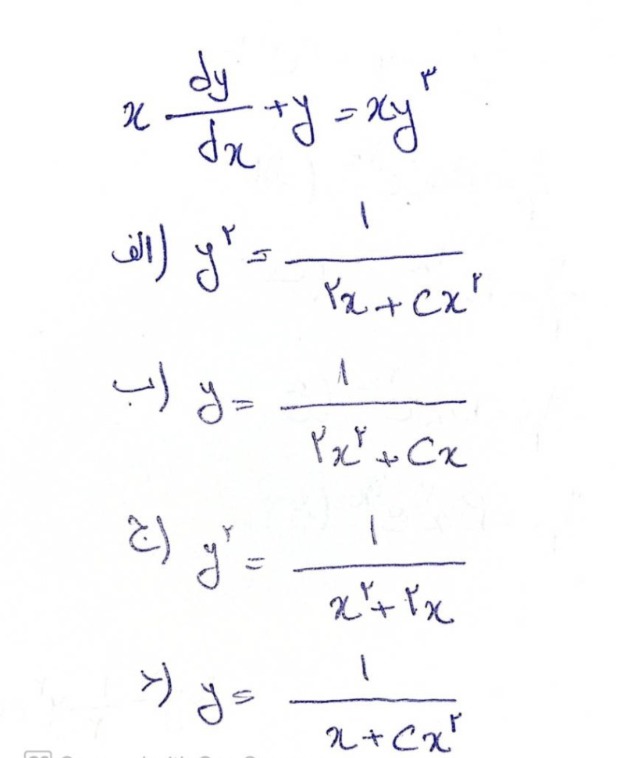 x dy/dx + y = xy^۳
الف) y^۲ = ۱ / (۲x + Cx^۲)
ب) y = ۱ / (۲x^۲ + Cx)
ج) y^۲ = ۱ / (x^۲ + ۲x)
د) y = ۱ / (x + Cx^۲)